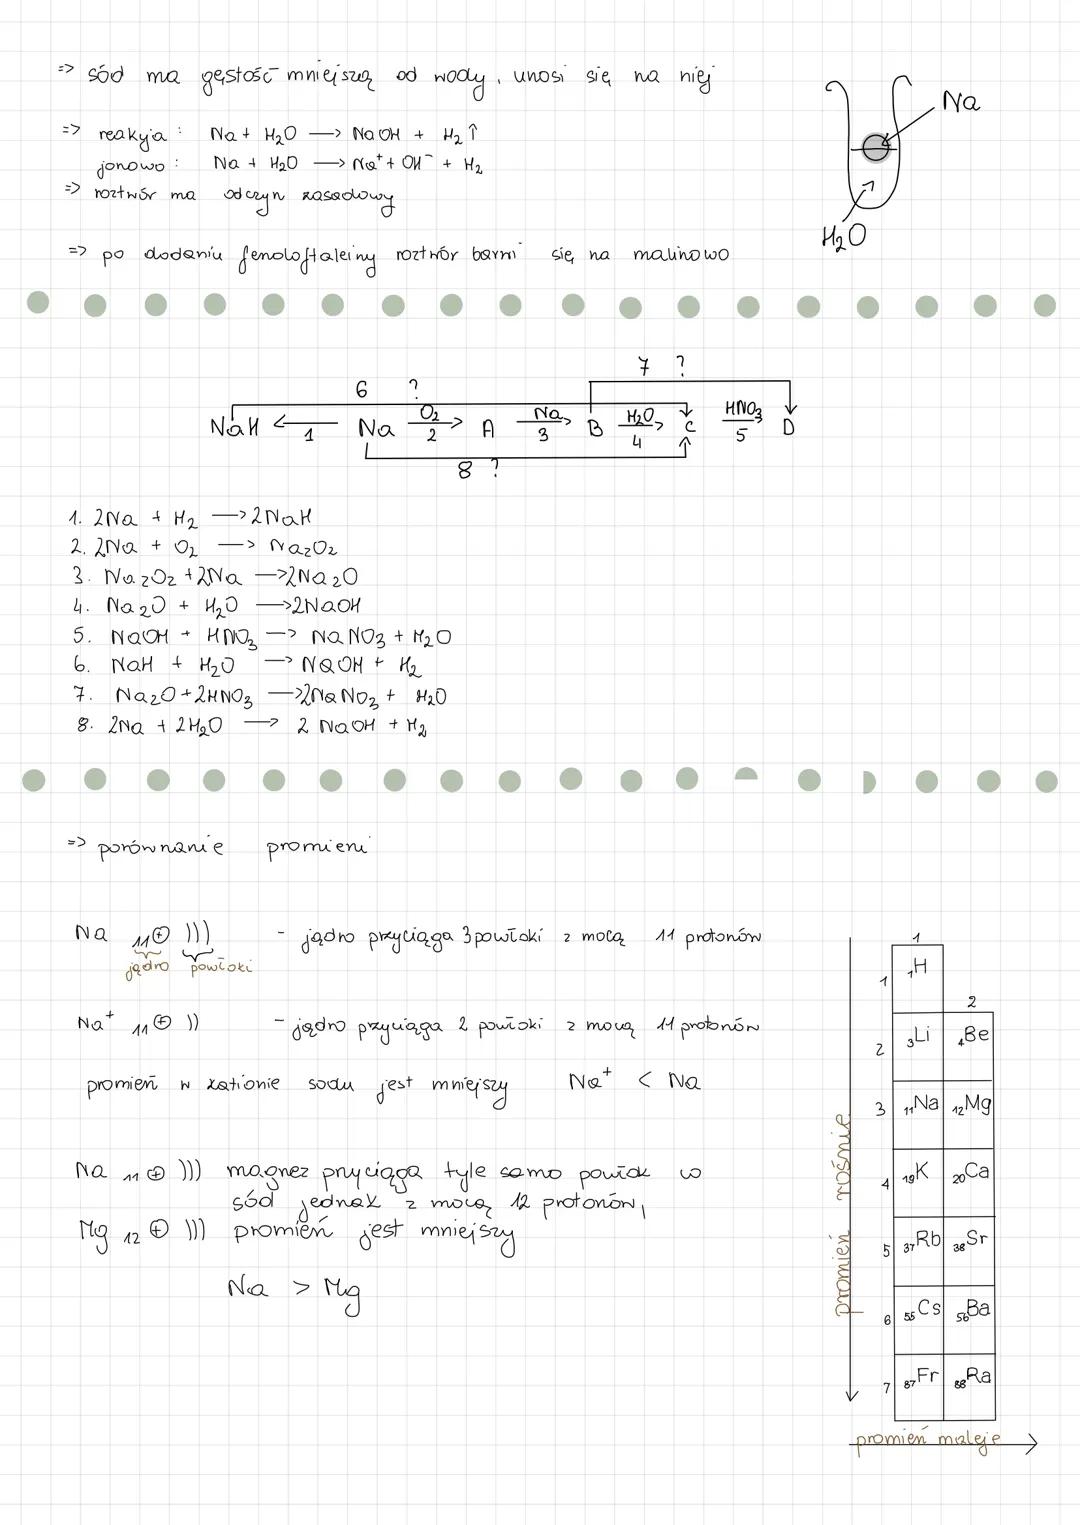 => sód ma gęstość mniejszą od wody, unosi się na niej
Na
=> reakcja: Na + H₂O —> NaOH + H₂↑
jonowo: Na + H₂O —> Na⁺ + OH⁻ + H₂
=> roztwór ma odczyn zasadowy
H₂O
=> po dodaniu fenoloftaleiny roztwór barwi się na malinowo
7 ?
6 ?
NaH <—1— Na —O₂ 2—> A —Na 3—> B —H₂O 4—> C —HNO₃ 5—> D
8 ?
1. 2Na + H₂ —> 2NaH
2. 2Na + O₂ —> Na₂O₂
3. Na₂O₂ + 2Na —> 2Na₂O
4. Na₂O + H₂O —> 2NaOH
5. NaOH + HNO₃ —> NaNO₃ + H₂O
6. NaH + H₂O —> NaOH + H₂
7. Na₂O + 2HNO₃ —> 2NaNO₃ + H₂O
8. 2Na + 2H₂O —> 2 NaOH + H₂
=> porównanie promieni
Na 11⊕ ))) - jądro przyciąga 3 powłoki z mocą 11 protonów
jądro powłoki
Na⁺ 11⊕ )) - jądro przyciąga 2 powłoki z mocą 11 protonów
promień w kationie sodu jest mniejszy Na⁺ < Na
Na 11⊕ ))) magnez przyciąga tyle samo powłok co
sód jednak z mocą 12 protonów,
Mg 12⊕ ))) promień jest mniejszy
Na > Mg
1
1 ₁H
2
2 ₃Li ₄Be
3 ₁₁Na ₁₂Mg
4 ₁₉K ₂₀Ca
5 ₃₇Rb ₃₈Sr
6 ₅₅Cs ₅₆Ba
7 ₈₇Fr ₈₈Ra
promień rośnie
promień maleje